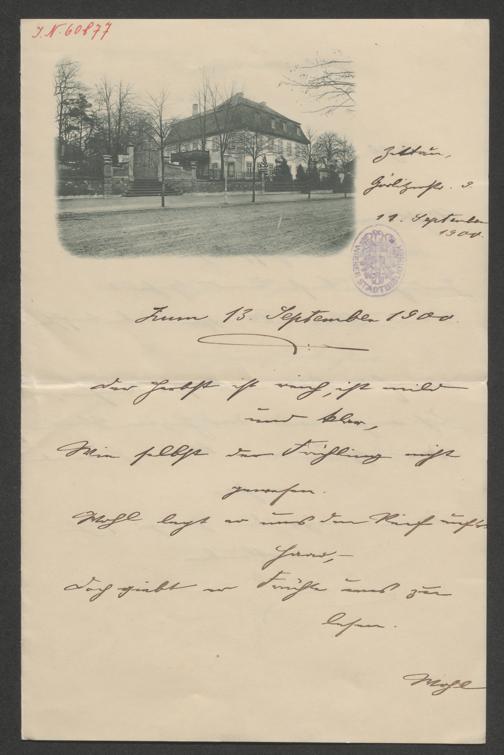 J.N. 60877
Zittau,
Görlitzerstr. 9.
11. September
1900.
WIENER STADTBIBLIOTHEK
Zum 13. September 1900.
Der Herbst ist reich, ist mild
und klar,
Wie selbst der Frühling nicht
gewesen.
Wohl legt er uns den Reif aufs
Haar, –
Doch giebt er Früchte uns zu
lesen.
Wohl